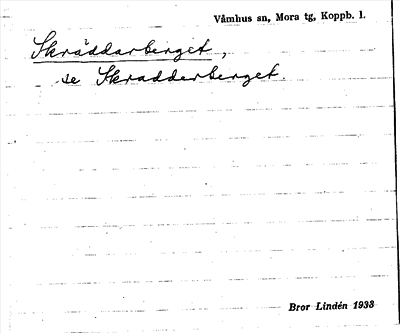 Våmhus sn, Mora tg, Koppb. l.
Skräddarberget,
se Skradderberget.
Bror Lindén 1933